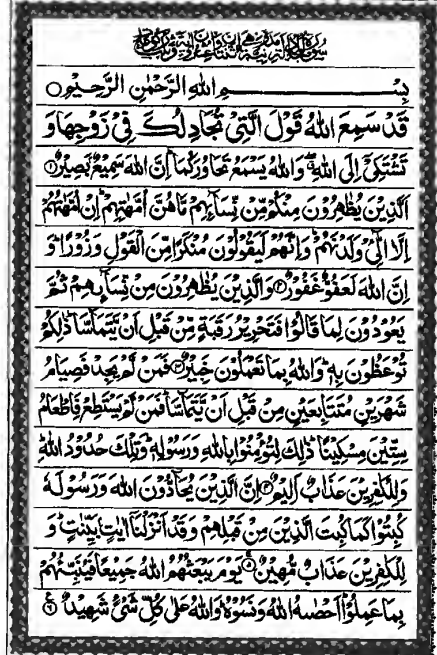 سورة المجادلة مدنية وهي اثنتان وعشرون اية وثلث ركوعات
بسم الله الرحمن الرحيم
قَدْ سَمِعَ اللهُ قَوْلَ الَّتِيْ تُجَادِلُكَ فِيْ زَوْجِهَا وَ
تَشْتَكِيْٓ اِلَى اللهِ ۖ وَاللهُ يَسْمَعُ تَحَاوُرَكُمَا ؕ اِنَّ اللهَ سَمِيْعٌۢ بَصِيْرٌ ۝۱
اَلَّذِيْنَ يُظٰهِرُوْنَ مِنْكُمْ مِّنْ نِّسَآئِهِمْ مَّا هُنَّ اُمَّهٰتِهِمْ ؕ اِنْ اُمَّهٰتُهُمْ
اِلَّا الّٰٓـِٔيْ وَلَدْنَهُمْ ؕ وَاِنَّهُمْ لَيَقُوْلُوْنَ مُنْكَرًا مِّنَ الْقَوْلِ وَزُوْرًا ؕ وَ
اِنَّ اللهَ لَعَفُوٌّ غَفُوْرٌ ۝۲ وَالَّذِيْنَ يُظٰهِرُوْنَ مِنْ نِّسَآئِهِمْ ثُمَّ
يَعُوْدُوْنَ لِمَا قَالُوْا فَتَحْرِيْرُ رَقَبَةٍ مِّنْ قَبْلِ اَنْ يَّتَمَآسَّا ؕ ذٰلِكُمْ
تُوْعَظُوْنَ بِهٖ ؕ وَاللهُ بِمَا تَعْمَلُوْنَ خَبِيْرٌ ۝۳ فَمَنْ لَّمْ يَجِدْ فَصِيَامُ
شَهْرَيْنِ مُتَتَابِعَيْنِ مِنْ قَبْلِ اَنْ يَّتَمَآسَّا ۚ فَمَنْ لَّمْ يَسْتَطِعْ فَاِطْعَامُ
سِتِّيْنَ مِسْكِيْنًا ؕ ذٰلِكَ لِتُؤْمِنُوْا بِاللهِ وَرَسُوْلِهٖ ؕ وَتِلْكَ حُدُوْدُ اللهِ ؕ
وَلِلْكٰفِرِيْنَ عَذَابٌ اَلِيْمٌ ۝۴ اِنَّ الَّذِيْنَ يُحَآدُّوْنَ اللهَ وَرَسُوْلَهٗ
كُبِتُوْا كَمَا كُبِتَ الَّذِيْنَ مِنْ قَبْلِهِمْ وَقَدْ اَنْزَلْنَآ اٰيٰتٍۢ بَيِّنٰتٍ ؕ وَ
لِلْكٰفِرِيْنَ عَذَابٌ مُّهِيْنٌ ۝۵ يَوْمَ يَبْعَثُهُمُ اللهُ جَمِيْعًا فَيُنَبِّئُهُمْ
بِمَا عَمِلُوْا ؕ اَحْصٰىهُ اللهُ وَنَسُوْهُ ؕ وَاللهُ عَلٰى كُلِّ شَيْءٍ شَهِيْدٌ ۝۶ ع